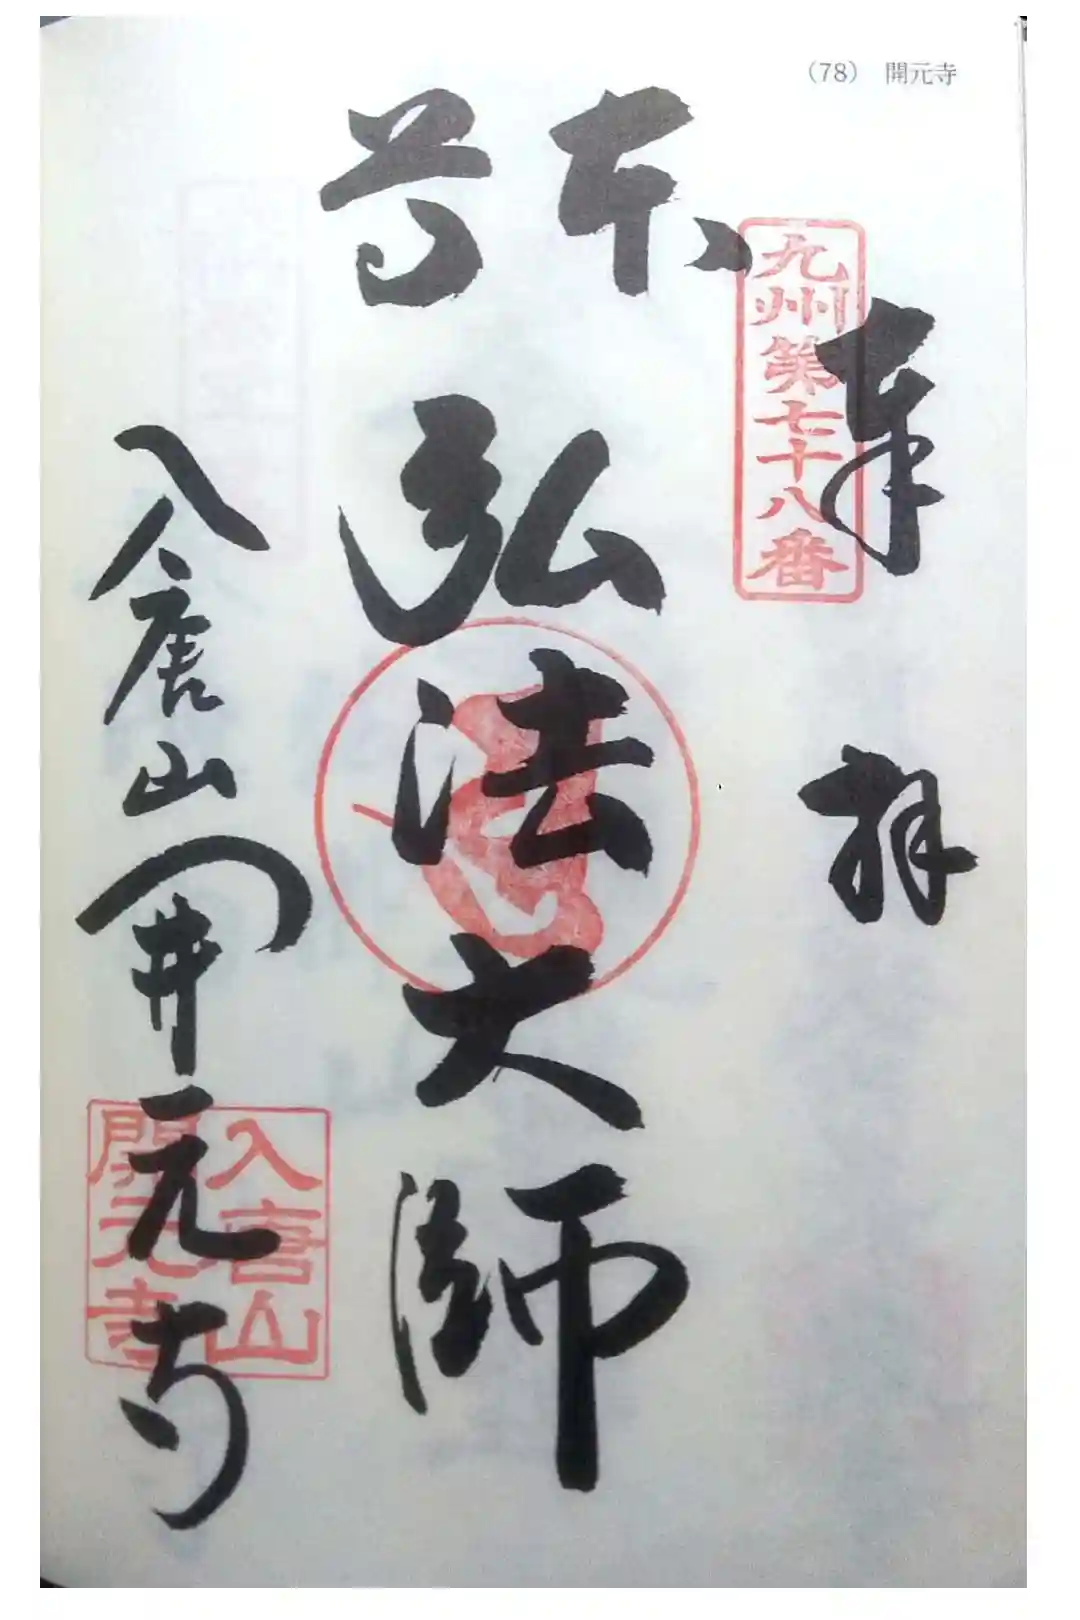 （78） 開元寺
奉拝
九州第七十八番
本尊
弘法大師
入唐山開元寺
入唐山
開元寺